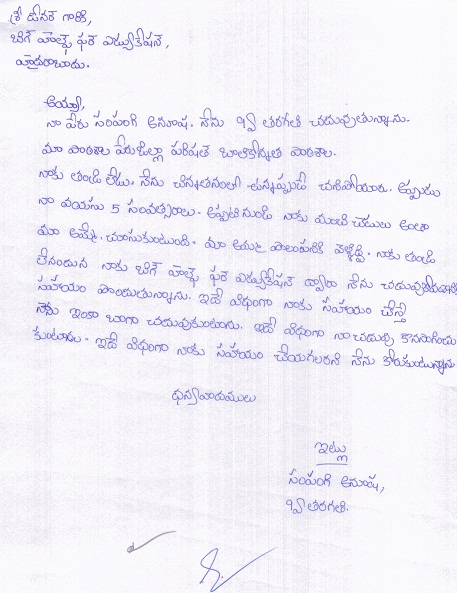 శ్రీ డోనర్ గారికి,
బిగ్ హెల్ప్ ఫర్ ఎడ్యుకేషన్,
హైదరాబాదు.
అయ్యా,
నా పేరు సంపంగి అనూష. నేను 9వ తరగతి చదువుతున్నాను.
మా పాఠశాల పేరు జిల్లా పరిషత్ బాలికోన్నత పాఠశాల.
నాకు తండ్రి లేడు. నేను చిన్నతనంలో ఉన్నప్పుడే చనిపోయారు. అప్పుడు
నా వయసు 5 సంవత్సరాలు. అప్పటినుండి నాకు మంచి చెడులు అంతా
మా అమ్మే చూసుకుంటుంది. మా అమ్మ పొలంపనికి వెళ్తుంది. నాకు తండ్రి
లేనందున నాకు బిగ్ హెల్ప్ ఫర్ ఎడ్యుకేషన్ ద్వారా నేను
సహాయం పొందుతున్నాను. ఇదే విధంగా నాకు సహాయం చేస్తే
నేను ఇంకా బాగా చదువుకుంటాను. ఇదే విధంగా నా చదువు కొనసాగించు
కుంటాను. ఇదే విధంగా నాకు సహాయం చేయగలరని నేను కోరుకుంటున్నాను
ధన్యవాదములు
ఇట్లు
సంపంగి అనూష,
9వ తరగతి.